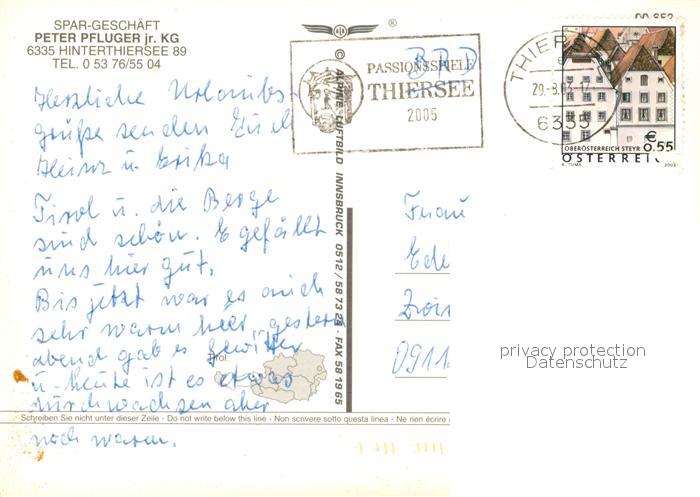 SPAR-GESCHÄFT
PETER PFLUGER jr. KG
6335 HINTERTHIERSEE 89
TEL. 0 53 76/55 04
Herzliche Urlaubs-
grüße senden Euch
Heinz u. Erika
Tirol u. die Berge
sind schön. Es gefällt
uns hier gut.
Bis jetzt war es auch
sehr warm hier, gestern
abend gab es Gewitter
u. heute ist es etwas
durchwachsen aber
noch warm.
Tirol
Schreiben Sie nicht unter dieser Zeile - Do not write below this line - Non scrivere sotto questa linea - Ne rien écrire
© ALPINE LUFTBILD INNSBRUCK 0512 / 58 73 23 · FAX 58 19 65
BRD
PASSIONSSPIELE
THIERSEE
2005
THIER
29.-8.03-17
6335
OBERÖSTERREICH STEYR
€ 0.55
ÖSTERREIC
2003
Frau
Ede
0911
privacy protection
Datenschutz